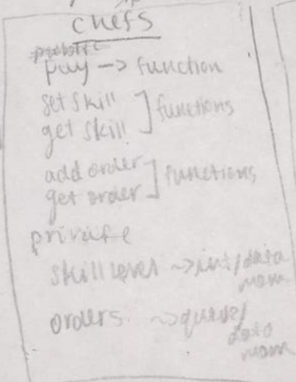 chefs
public
pay -> function
set skill ] functions
get skill
add order ] functions
get order
private
skill level ~> int/data
mem
orders ~> queue/
data
mem